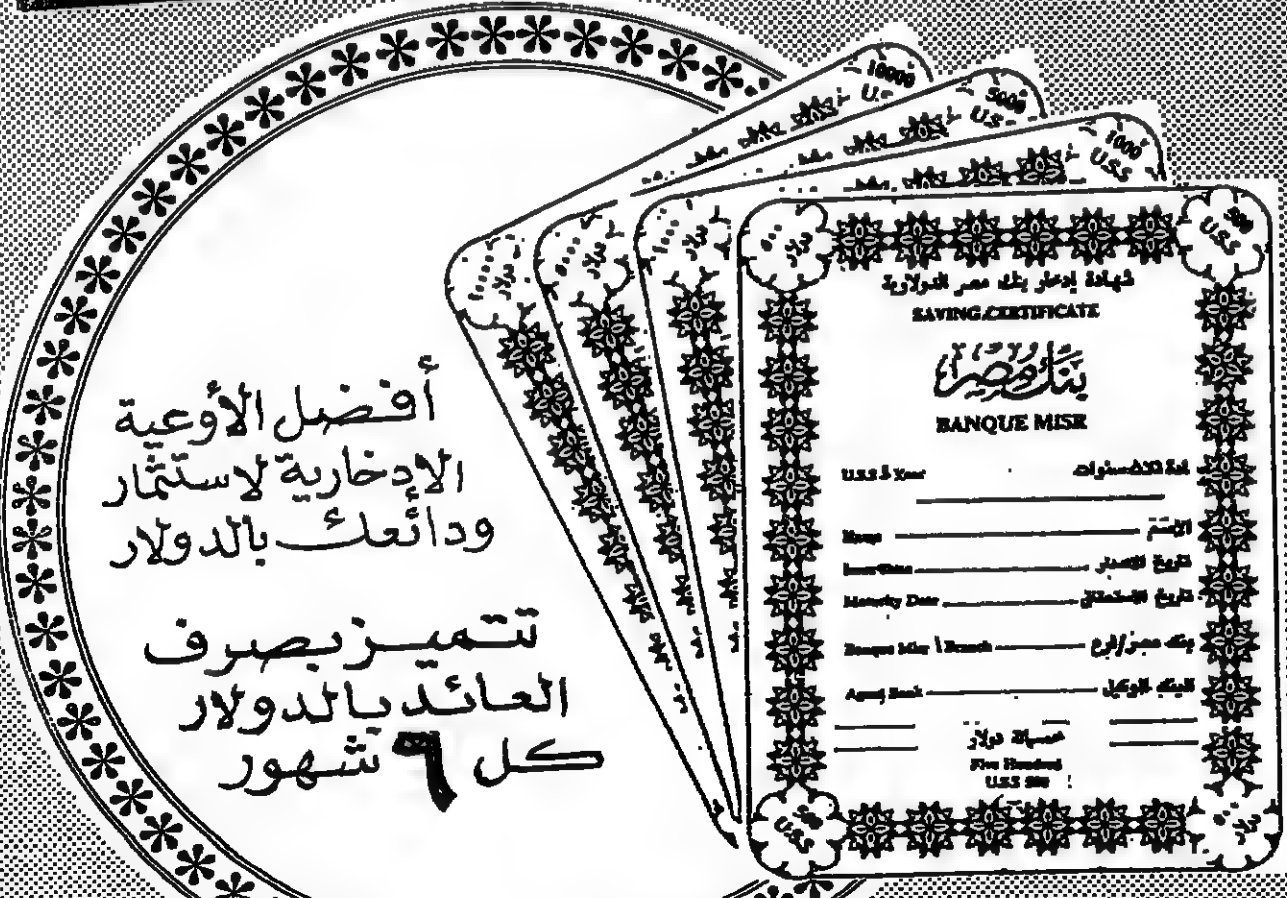 أفضل الأوعية
الإدخارية لاستثمار
ودائعك بالدولار
تتميز بصرف
العائد بالدولار
كل ٦ شهور
10000
U.S
5000
U.S
1000
U.S$
500
U.S$
١٠٠٠٠ دولار
٥٠٠٠ دولار
١٠٠٠ دولار
٥٠٠ دولار
شهادة إدخار بنك مصر الدولارية
SAVING CERTIFICATE
بنك مصر
BANQUE MISR
U.S.$ 3 Year لمدة ثلاث سنوات
Name الإسم
Issue Date تاريخ الإصدار
Maturity Date تاريخ الإستحقاق
Banque Misr / Branch بنك مصر/فرع
Agent Bank البنك الوكيل
خمسمائة دولار
Five Hundred
U.S.$ 500
500
U.S$
٥٠٠ دولار